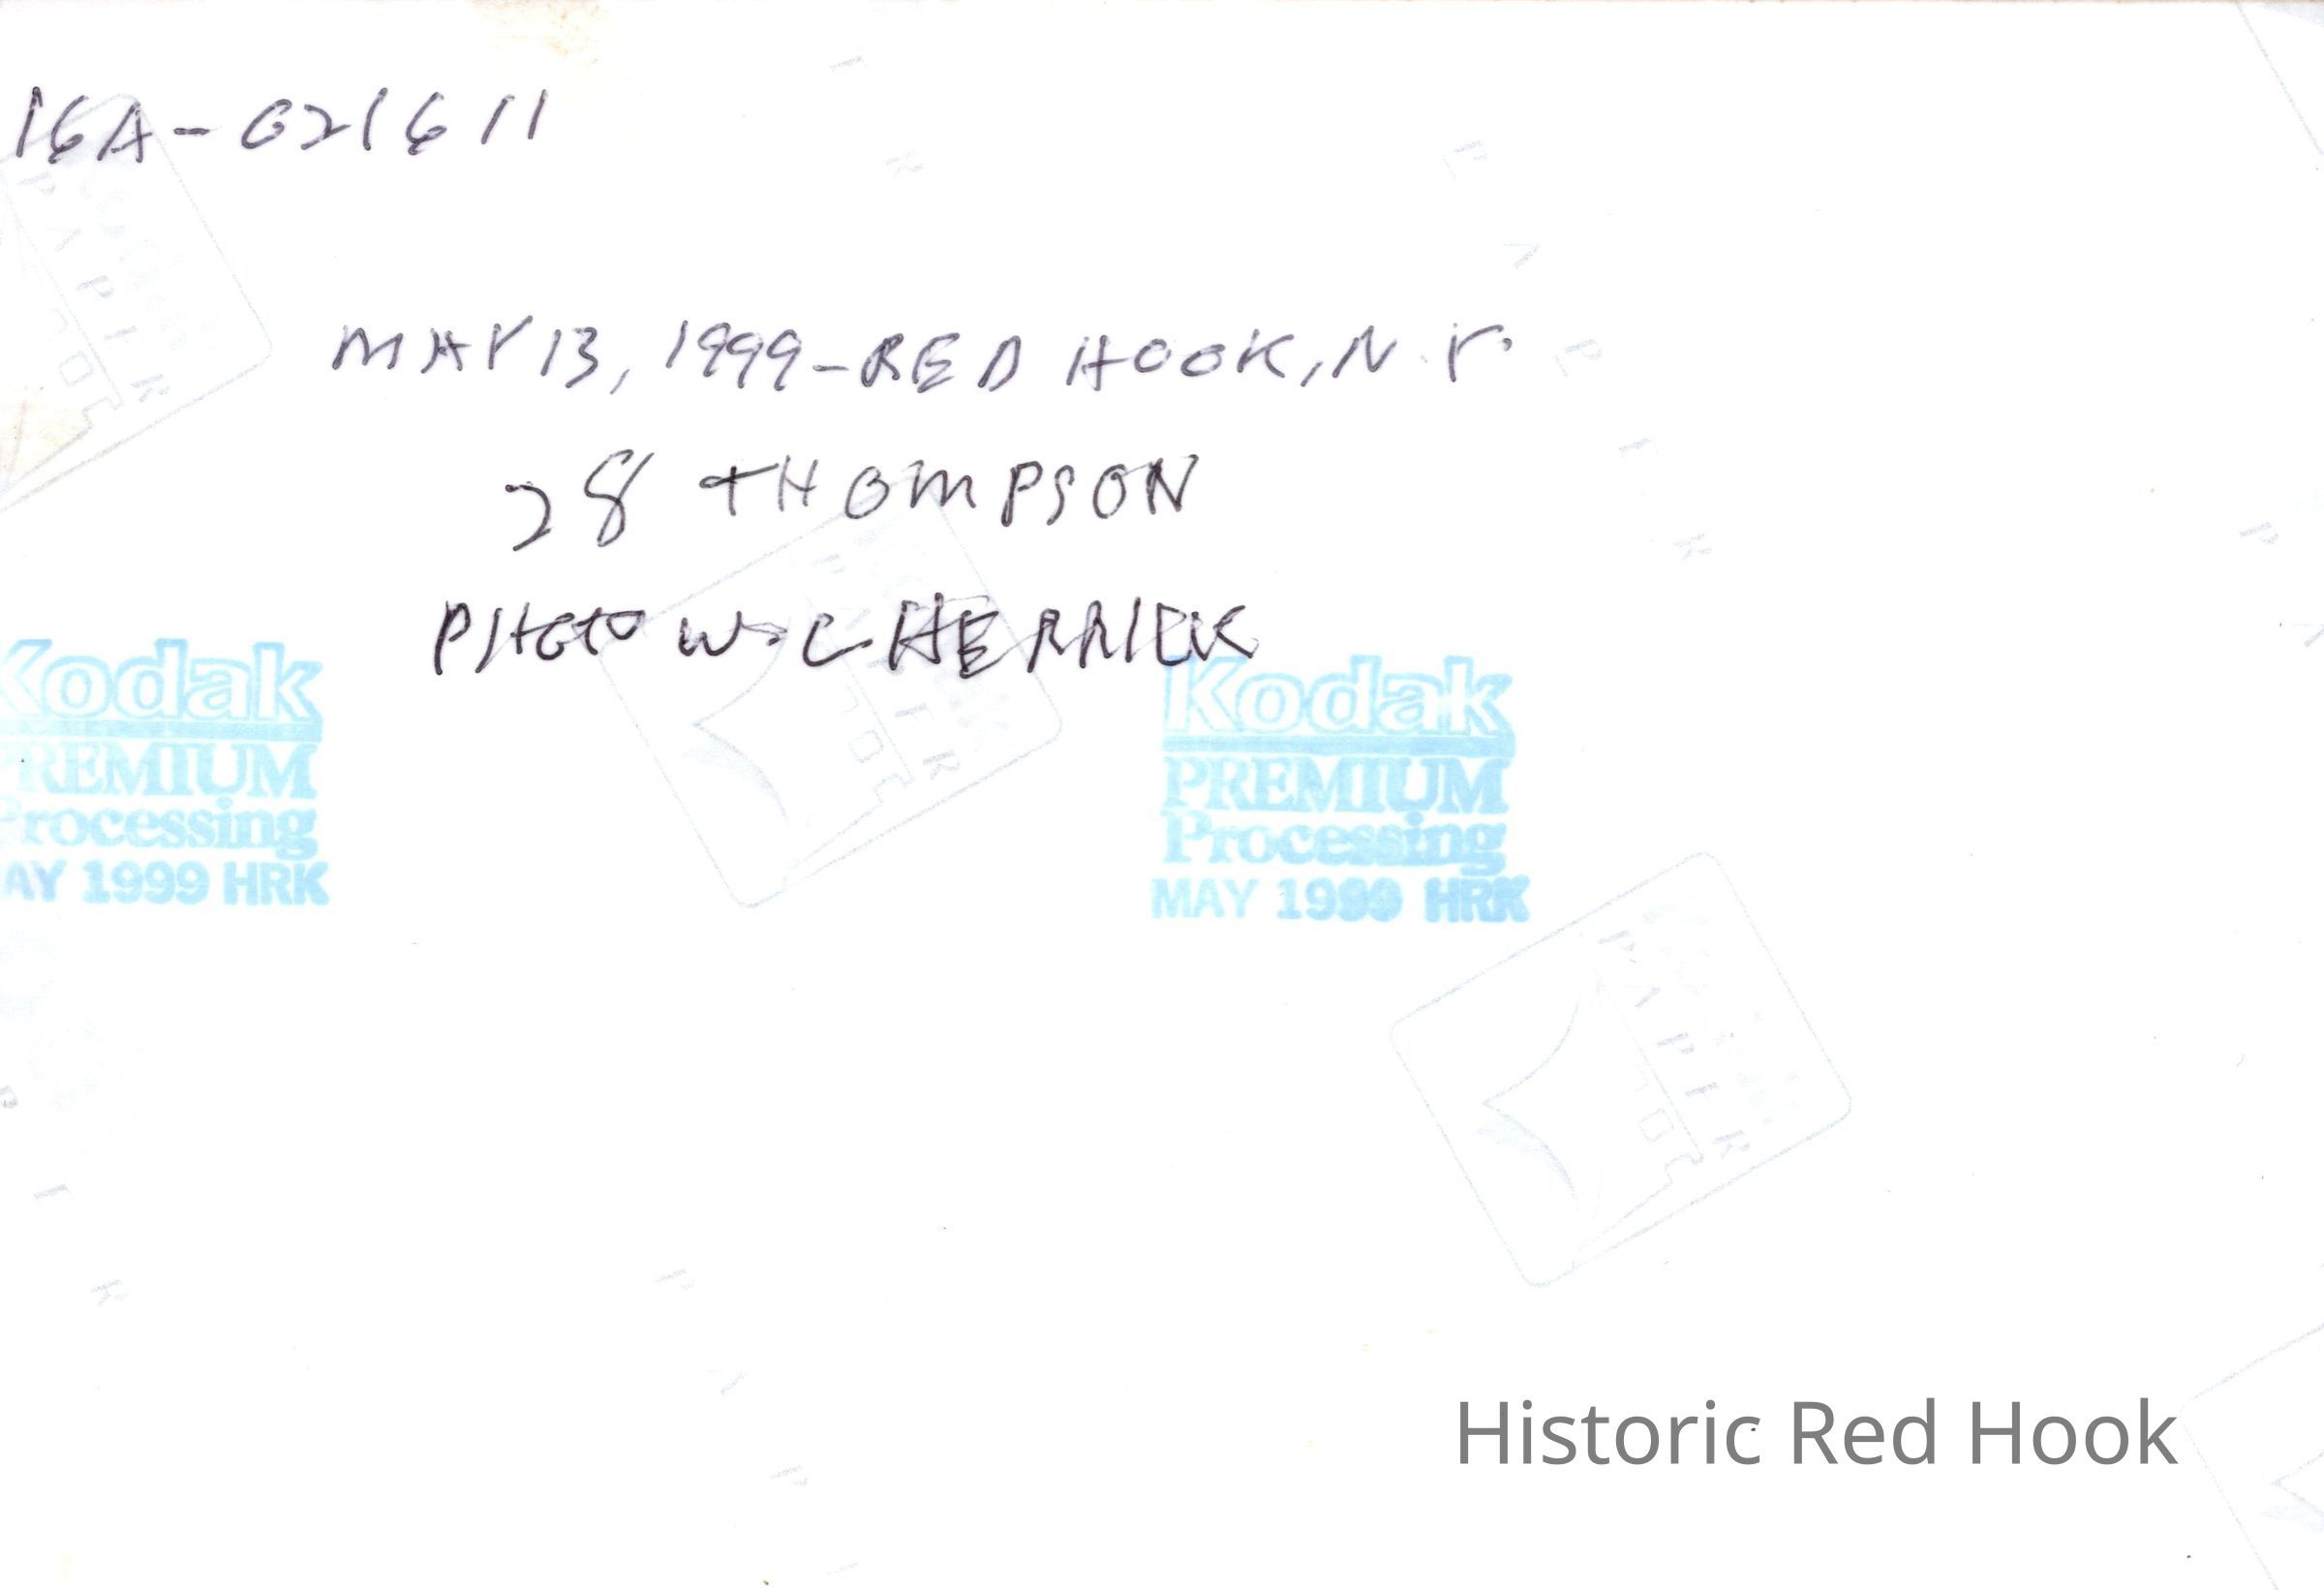 16A-021611
MAY 13, 1999-RED HOOK, N.Y.
28 THOMPSON
PHOTO W.C. HERRICK
Kodak
PREMIUM
Processing
AY 1999 HRK
Kodak
PREMIUM
Processing
MAY 1999 HRK
Historic Red Hook